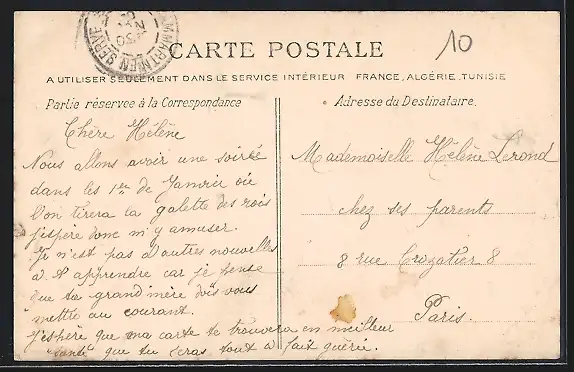 10
CARTE POSTALE
A UTILISER SEULEMENT DANS LE SERVICE INTÉRIEUR FRANCE, ALGÉRIE, TUNISIE
Partie réservée à la Correspondance
Adresse du Destinataire.
Chère Hélène
Nous allons avoir une soirée
dans les 1ers de Janvier où
l'on tirera la galette des rois
j'espère donc m'y amuser.
Je n'est pas d'autres nouvelles
a t'apprendre car je pense
que ta grand'mère dois vous
mettre au courant.
J'espère que ma carte te trouvera en meilleur
"santé" que tu seras tout a fait guérie.
Mademoiselle Hélène Lerond
chez ses parents
8 rue Crozatier 8
Paris.